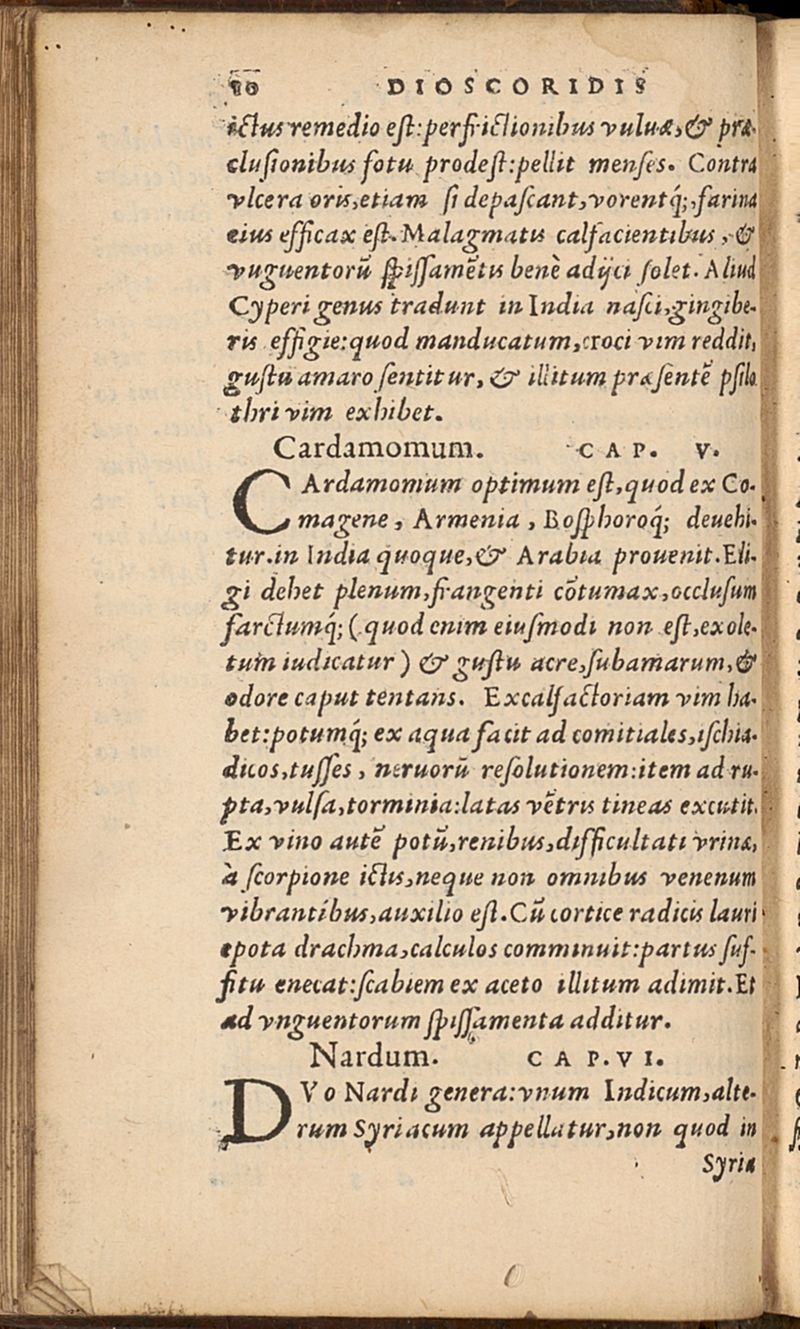 10 DIOSCORIDIS
ictus remedio eſt:perfrictionibus vuluæ,& præ-
cluſionibus fotu prodeſt:pellit menſes. Contra
vlcera oris,etiam ſi depaſcant,vorentq́;,farina
eius efficax eſt. Malagmatis calfacientibus,&
vuguentorū ſpiſſamētis benè adijci ſolet. Aliud
Cyperi genus tradunt in India naſci,gingibe-
ris effigie:quod manducatum,croci vim reddit,
guſtu amaro ſentitur, & illitum præſentē pſilo
thri vim exhibet.
Cardamomum. CAP. V.
CArdamomum optimum eſt,quod ex Co-
magene, Armenia, Boſphoroq́; deuehi-
tur.in India quoque,& Arabia prouenit.Eli-
gi debet plenum,frangenti cōtumax,occluſum
farctumq́;(quod enim eiuſmodi non eſt,exole-
tum iudicatur) & guſtu acre,ſubamarum,&
odore caput tentans. Excalfactoriam vim ha-
bet:potumq́; ex aqua facit ad comitiales,iſchia-
dicos,tuſſes, neruorū reſolutionem:item ad ru-
pta,vulſa,torminia:latas vētris tineas excutit.
Ex vino autē potū,renibus,difficultati vrinæ,
à ſcorpione ictis,neque non omnibus venenum
vibrantibus,auxilio eſt.Cū cortice radicis lauri
epota drachma,calculos comminuit:partus ſuf-
fitu enecat:ſcabiem ex aceto illitum adimit.Et
ad vnguentorum ſpiſſamenta additur.
Nardum. CAP.VI.
DVo Nardi genera:vnum Indicum,alte-
rum Syriacum appellatur,non quod in
Syria